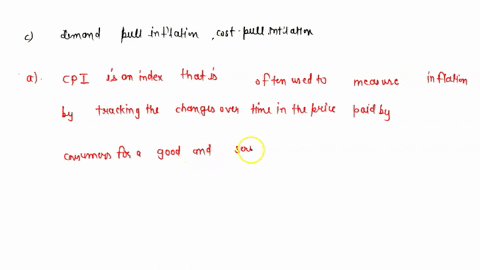 c) demand pull inflation, cost-pull inflation
a). CPI is an index that is often used to measure inflation
by tracking the changes over time in the price paid by
consumers for a good and serv